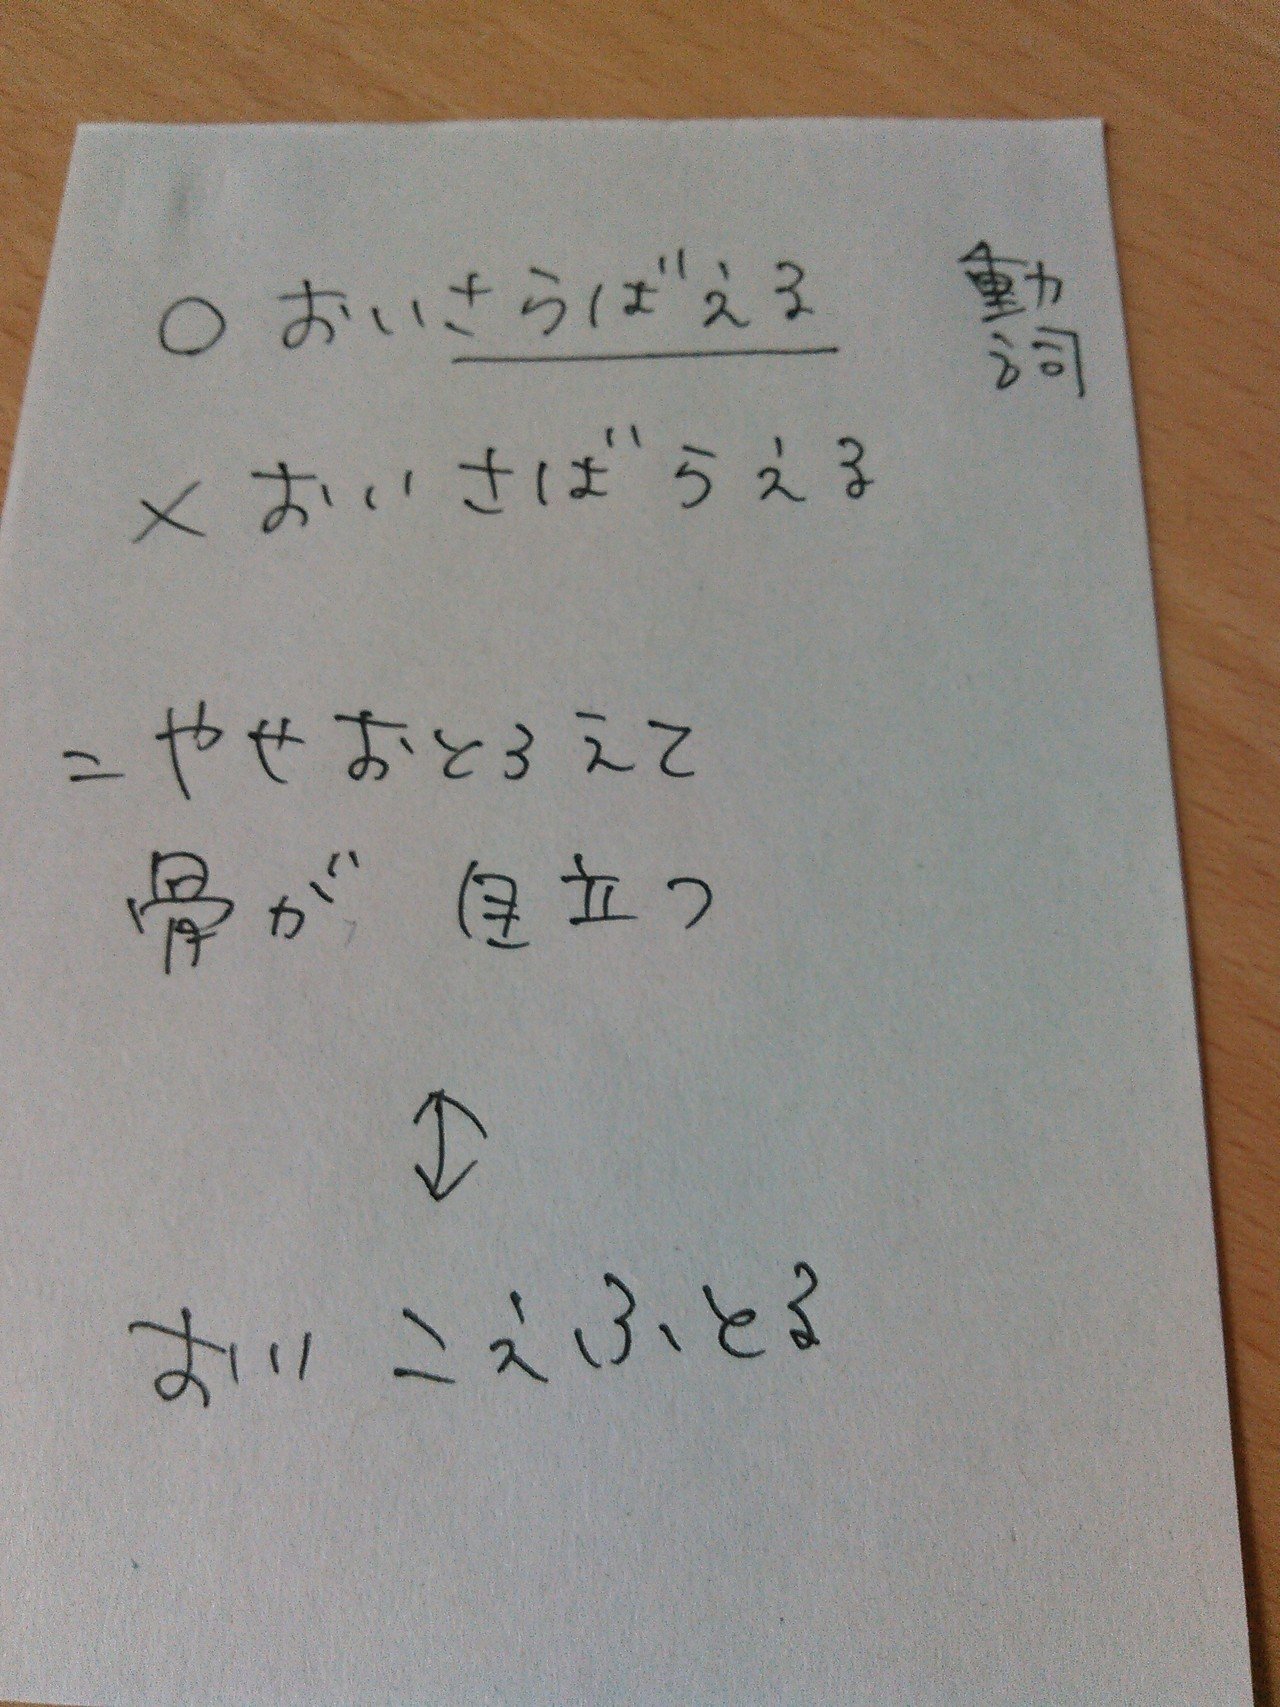 ○ おいさらばえる 動詞
× おいさばらえる
=やせおとろえて
骨が 目立つ
↕
おい こえふとる